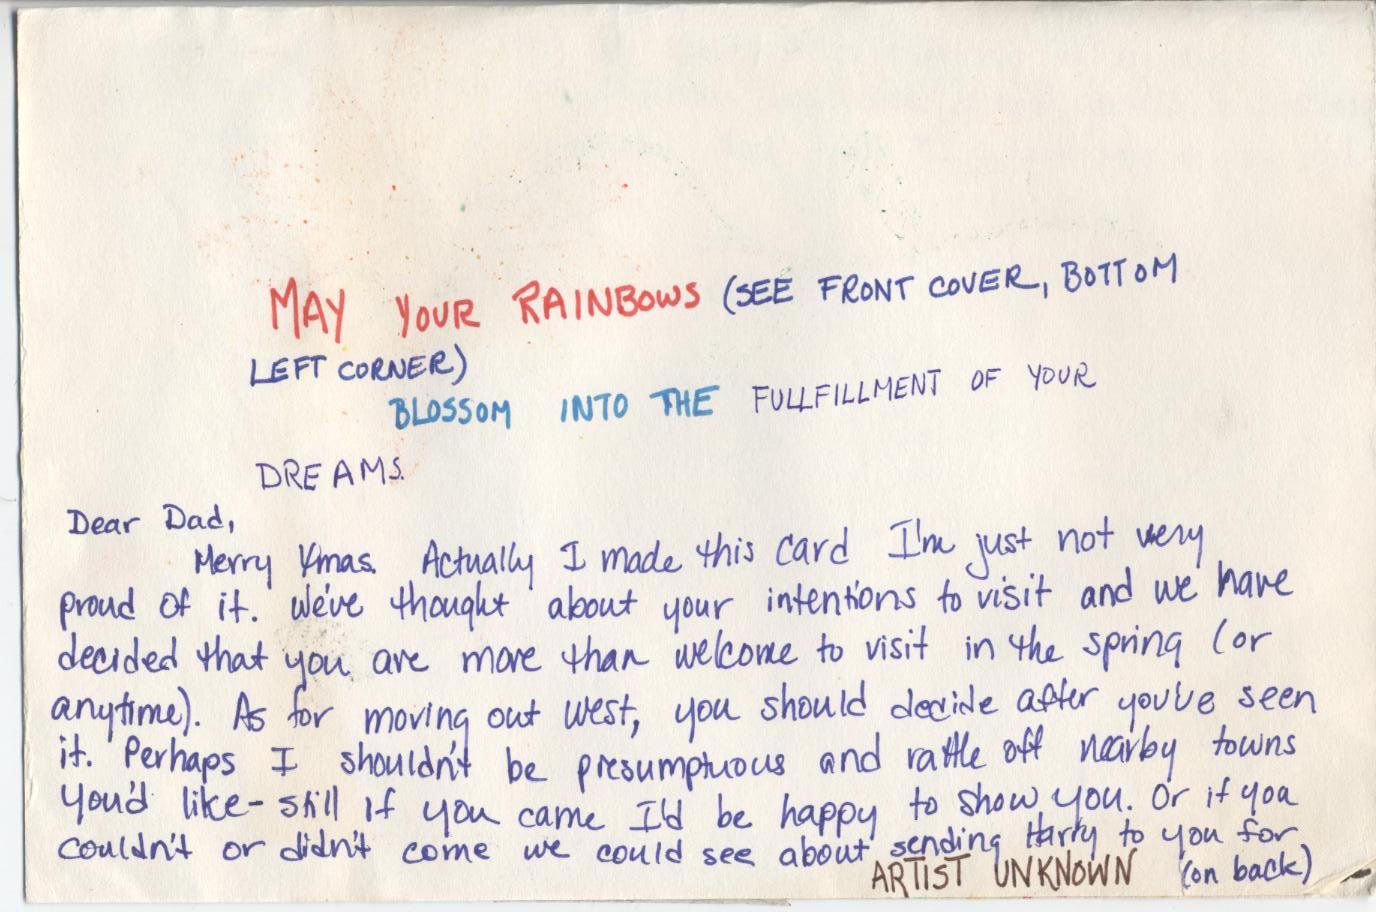 MAY YOUR RAINBOWS (SEE FRONT COVER, BOTTOM
LEFT CORNER)
BLOSSOM INTO THE FULLFILLMENT OF YOUR
DREAMS.
Dear Dad,
Merry Xmas. Actually I made this card I'm just not very
proud of it. We've thought about your intentions to visit and we have
decided that you are more than welcome to visit in the spring (or
anytime). As for moving out west, you should decide after you've seen
it. Perhaps I shouldn't be presumptuous and rattle off nearby towns
you'd like - still if you came I'd be happy to show you. Or if you
couldn't or didn't come we could see about sending Harry to you for
ARTIST UNKNOWN (on back)